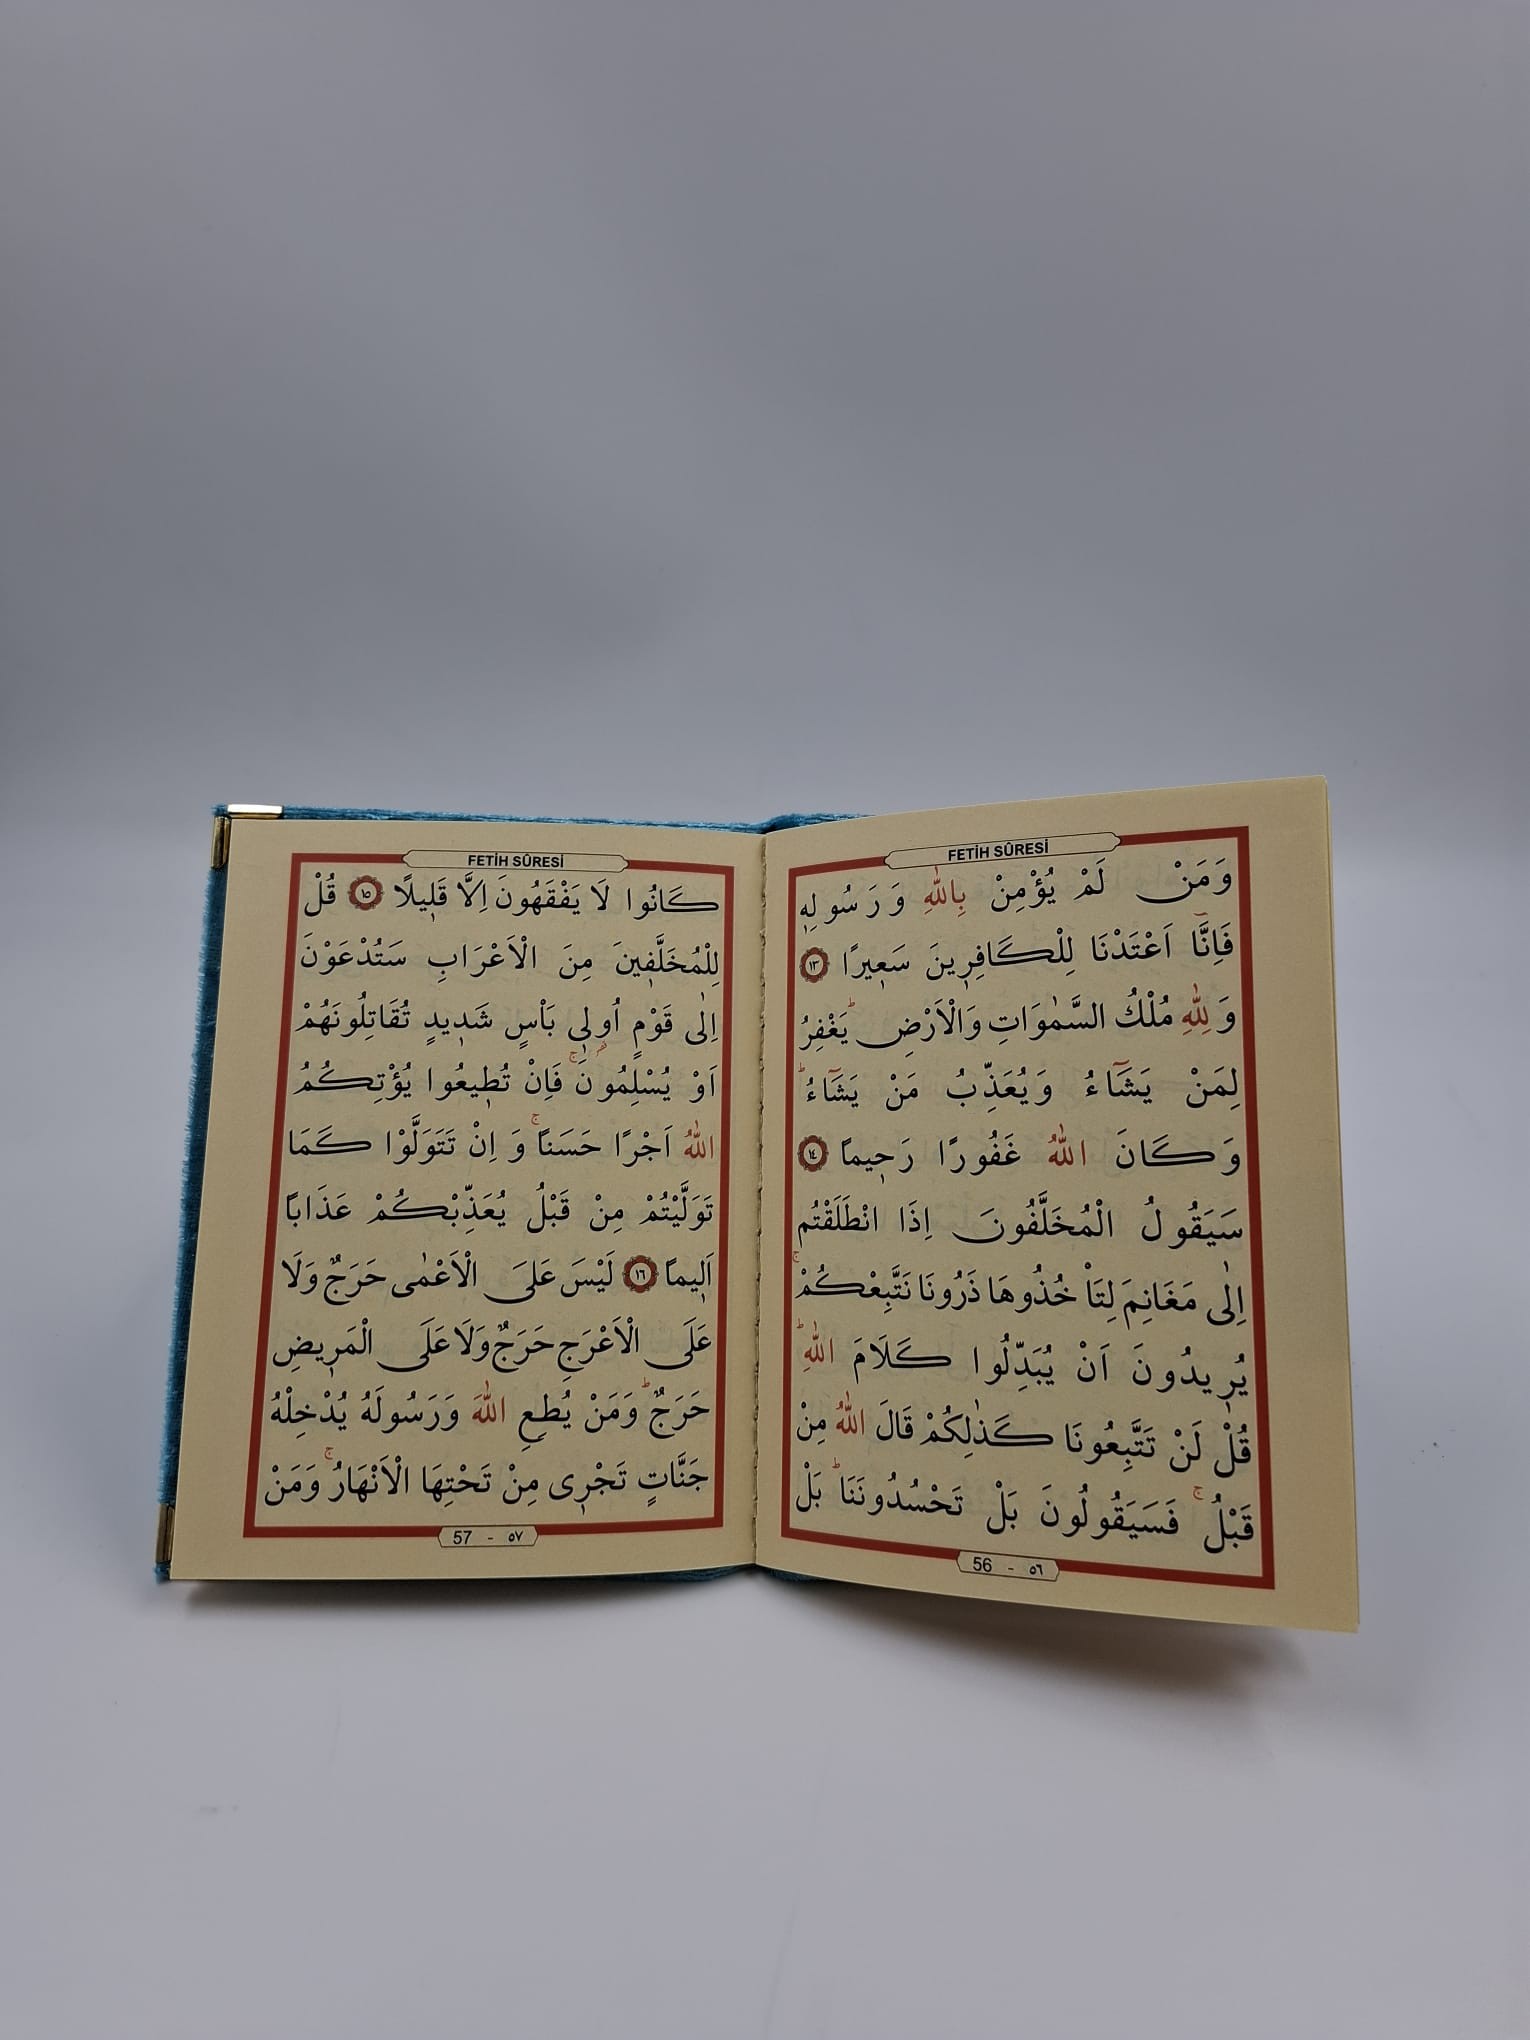 FETİH SÛRESİ
وَمَنْ لَمْ يُؤْمِنْ بِاللّٰهِ وَرَسُولِهٖ
فَاِنَّٓا اَعْتَدْنَا لِلْكَافِرٖينَ سَعٖيرًا ١٣
وَلِلّٰهِ مُلْكُ السَّمٰوَاتِ وَالْاَرْضِ ۜ يَغْفِرُ
لِمَنْ يَشَٓاءُ وَيُعَذِّبُ مَنْ يَشَٓاءُ ۜ
وَكَانَ اللّٰهُ غَفُورًا رَحٖيمًا ١٤
سَيَقُولُ الْمُخَلَّفُونَ اِذَا انْطَلَقْتُم
اِلٰى مَغَانِمَ لِتَاْخُذُوهَا ذَرُونَا نَتَّبِعْكُمْ ۚ
يُرٖيدُونَ اَنْ يُبَدِّلُوا كَلَامَ اللّٰهِ ۜ
قُلْ لَنْ تَتَّبِعُونَا كَذٰلِكُمْ قَالَ اللّٰهُ مِنْ
قَبْلُ ۚ فَسَيَقُولُونَ بَلْ تَحْسُدُونَنَا ۜ بَلْ
56 - ٥٦
FETİH SÛRESİ
كَانُوا لَا يَفْقَهُونَ اِلَّا قَلٖيلًا ١٥ قُلْ
لِلْمُخَلَّفٖينَ مِنَ الْاَعْرَابِ سَتُدْعَوْنَ
اِلٰى قَوْمٍ اُولٖى بَاْسٍ شَدٖيدٍ تُقَاتِلُونَهُمْ
اَوْ يُسْلِمُونَ ۚ فَاِنْ تُطٖيعُوا يُؤْتِكُمُ
اللّٰهُ اَجْرًا حَسَنًا ۚ وَاِنْ تَتَوَلَّوْا كَمَا
تَوَلَّيْتُمْ مِنْ قَبْلُ يُعَذِّبْكُمْ عَذَابًا
اَلٖيمًا ١٦ لَيْسَ عَلَى الْاَعْمٰى حَرَجٌ وَلَا
عَلَى الْاَعْرَجِ حَرَجٌ وَلَا عَلَى الْمَرٖيضِ
حَرَجٌ ۜ وَمَنْ يُطِعِ اللّٰهَ وَرَسُولَهُ يُدْخِلْهُ
جَنَّاتٍ تَجْرٖى مِنْ تَحْتِهَا الْاَنْهَارُ ۚ وَمَنْ
57 - ٥٧